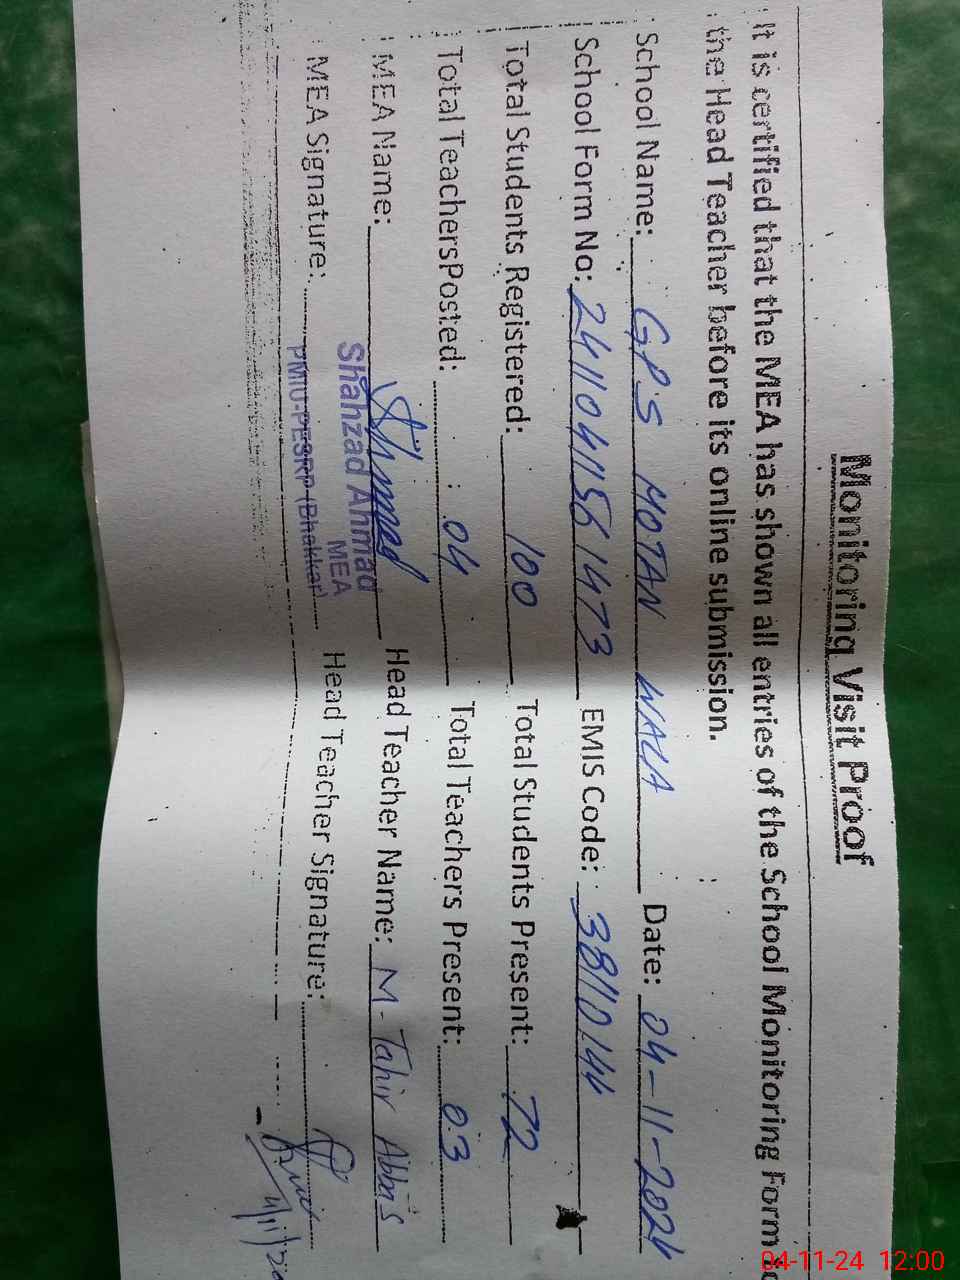 Monitoring Visit Proof
It is certified that the MEA has shown all entries of the School Monitoring Form to
the Head Teacher before its online submission.
School Name: GPS MOTAN WALA Date: 04-11-2024
School Form No: 24110411561473 EMIS Code: 38110144
Total Students Registered: 100 Total Students Present: 72
Total TeachersPosted: 04 Total Teachers Present: 03
MEA Name: Ahmad Head Teacher Name: M-Tahir Abbas
Shahzad Ahmad
MEA
MEA Signature: PMIU-PESRP (Bhakkar) Head Teacher Signature:
04-11-24 12:00